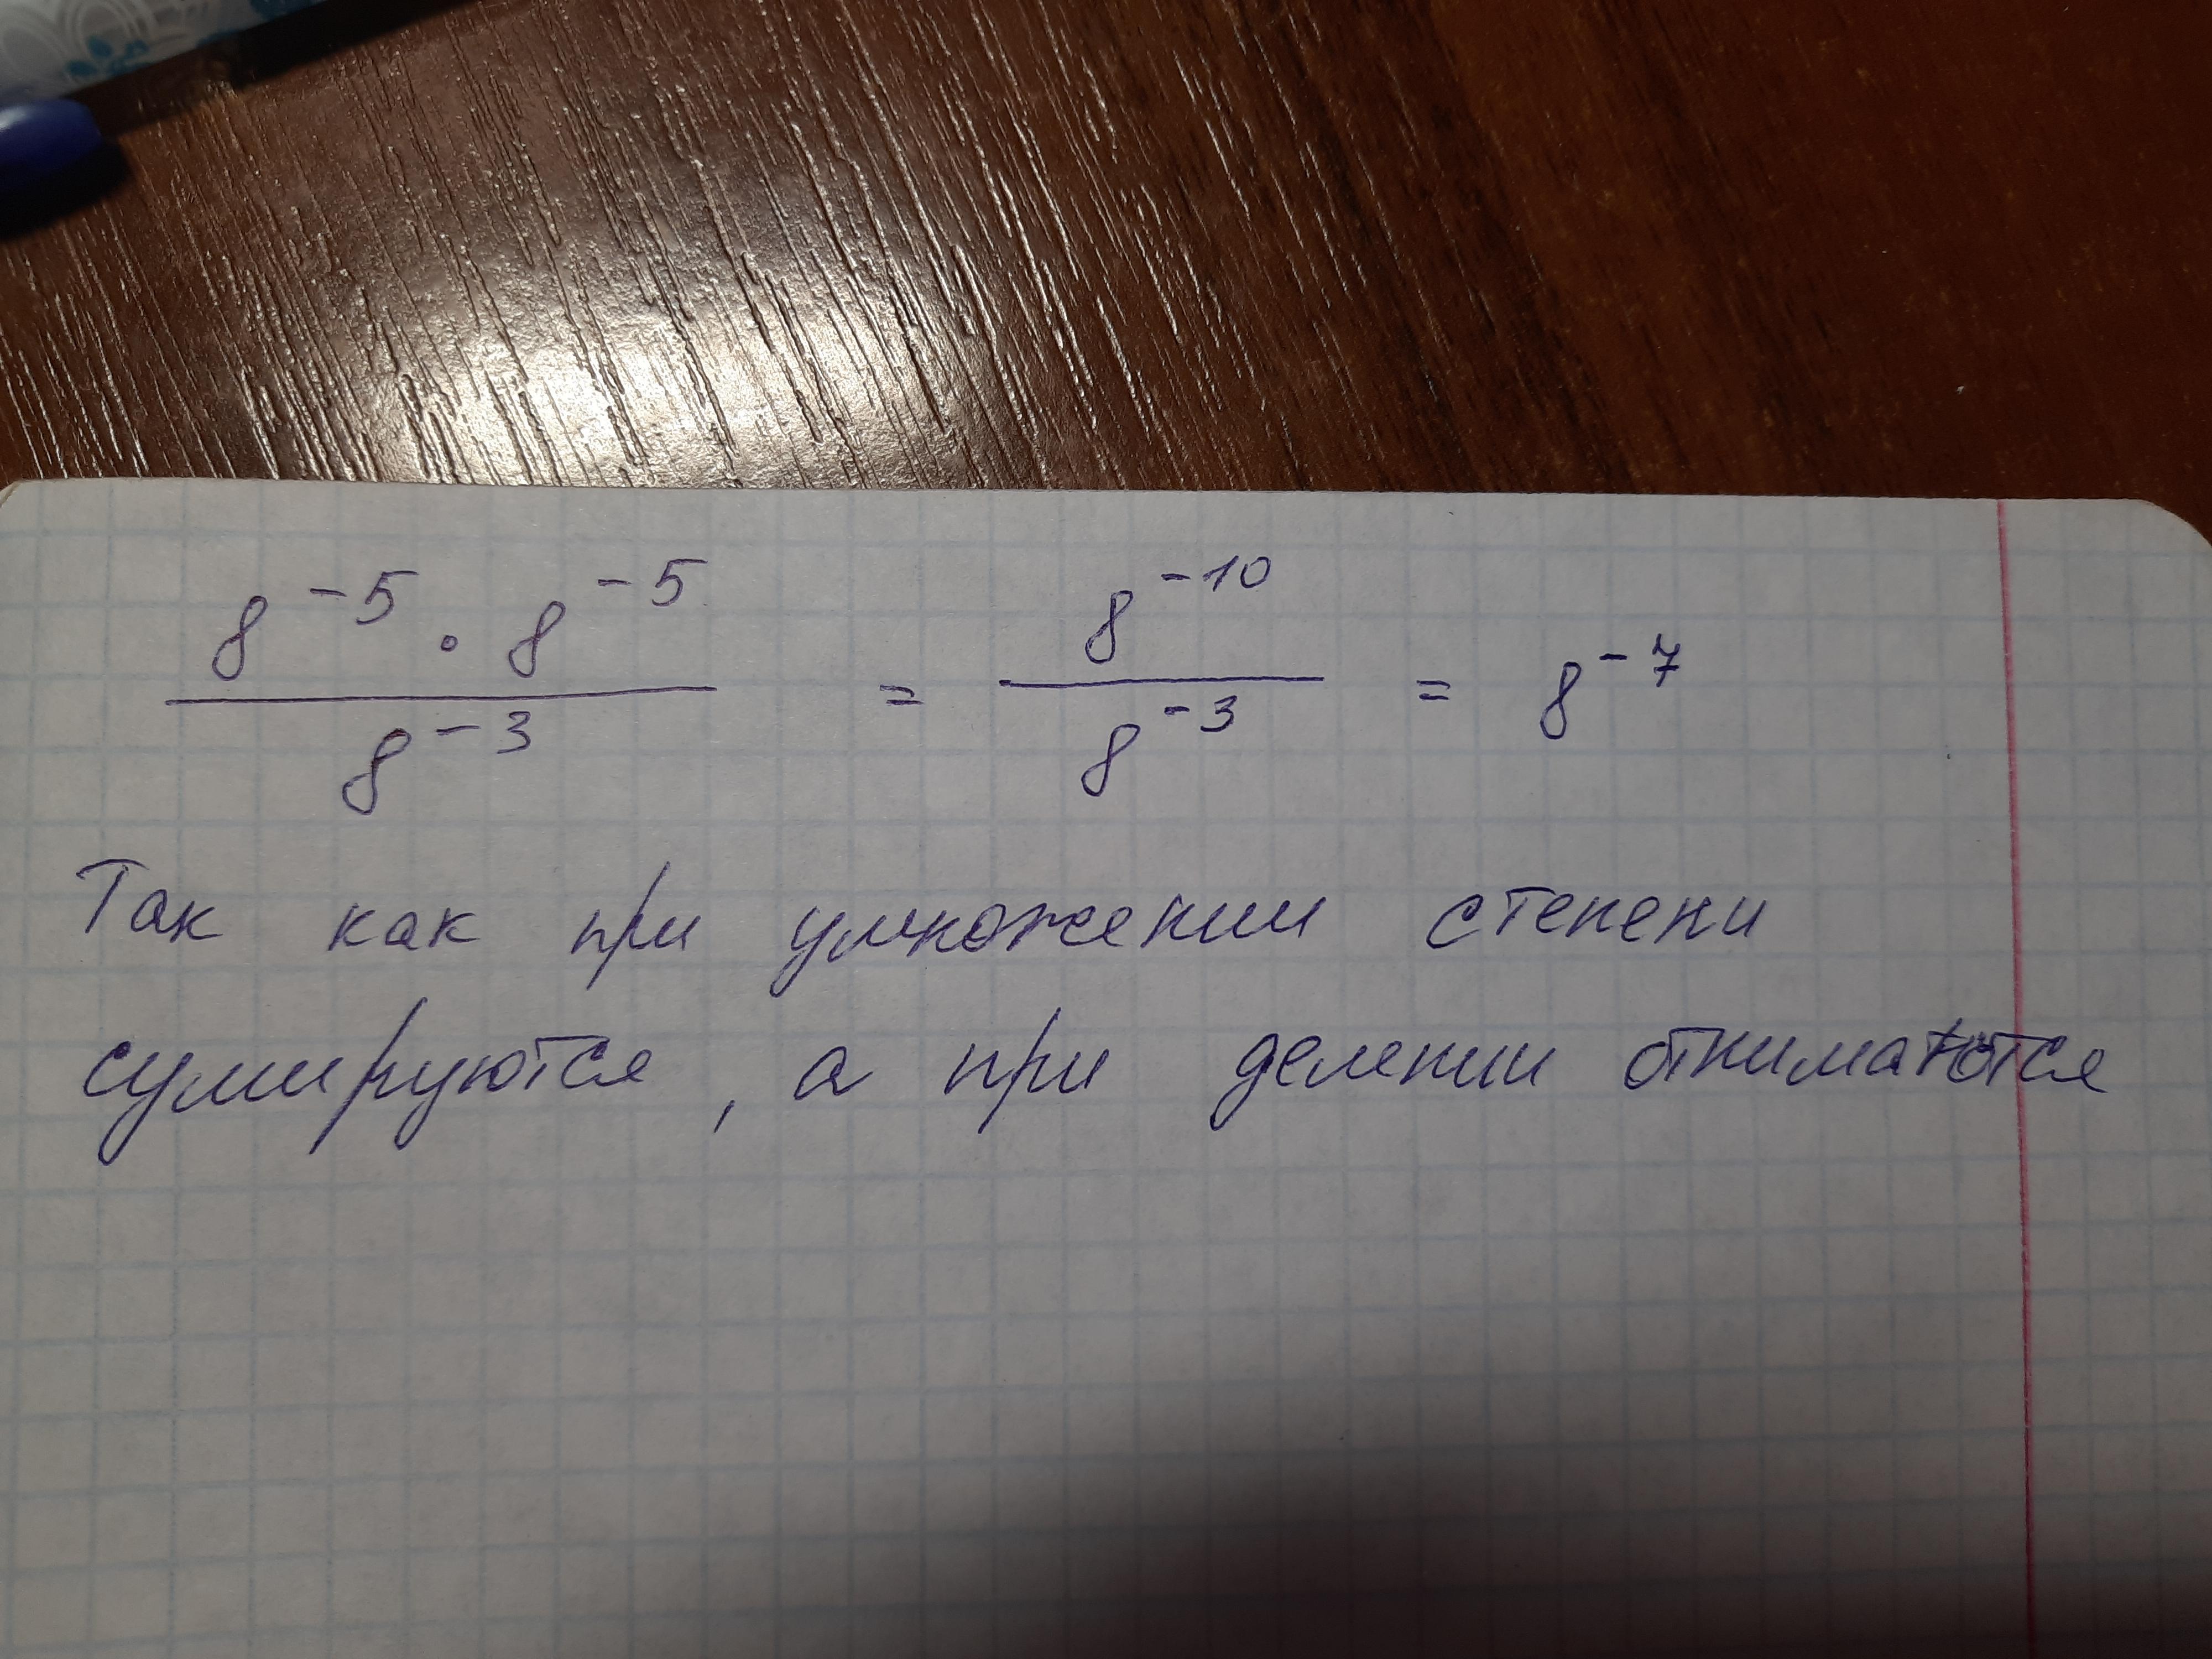 8⁻⁵ · 8⁻⁵ / 8⁻³ = 8⁻¹⁰ / 8⁻³ = 8⁻⁷
Так как при умножении степени
сумируются, а при делении отнимаются